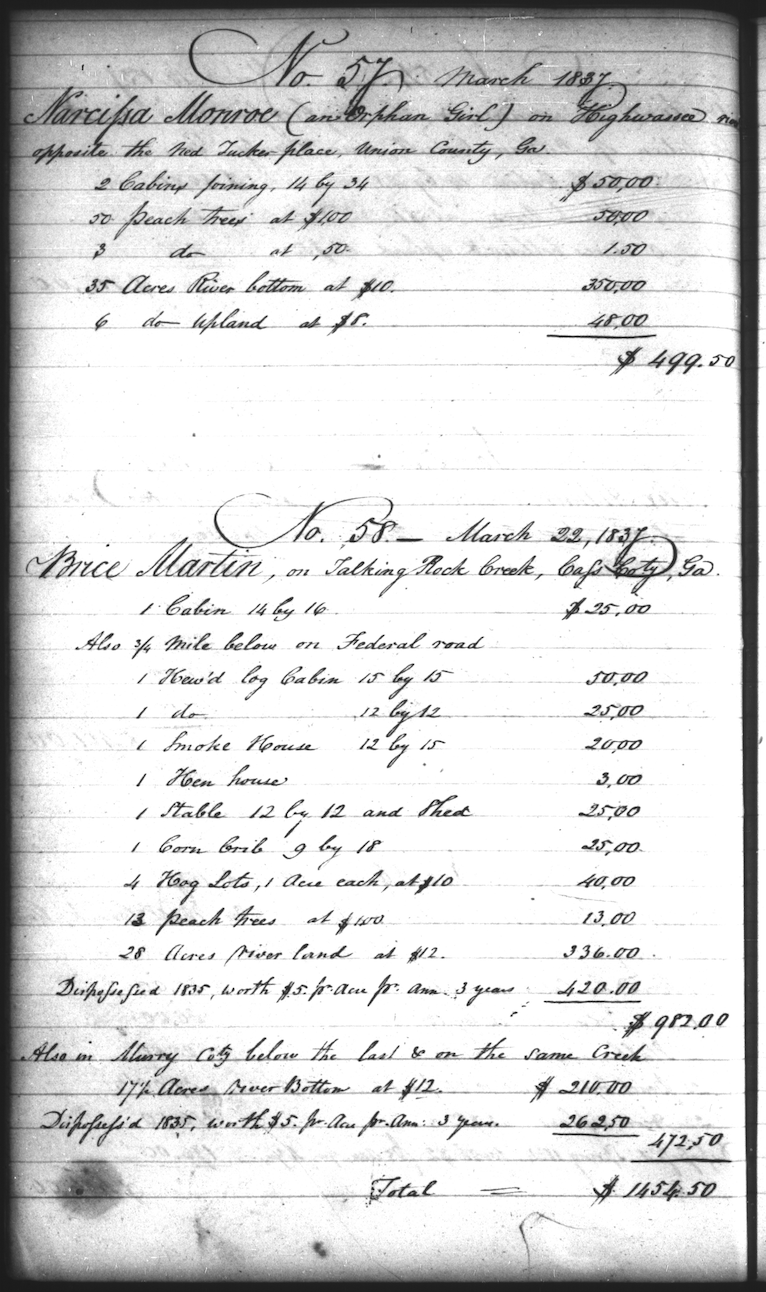 No 57. March 1837.
Narcissa Monroe (an Orphan Girl) on Highwassee
opposite the Ned Tucker place, Union County, Ga
2 Cabins joining, 14 by 34 $50,00
50 peach trees at $1,00 50,00
3 do at ,50 1.50
35 Acres River bottom at $10. 350,00
6 do Upland at $8. 48,00
$ 499.50
No. 58 – March 22, 1837.
Brice Martin, on Talking Rock Creek, Cass Coty, Ga.
1 Cabin 14 by 16 $25,00
Also 3/4 Mile below on Federal road
1 Hew'd log Cabin 15 by 15 50,00
1 do 12 by 12 25,00
1 Smoke House 12 by 15 20,00
1 Hen house 3,00
1 Stable 12 by 12 and Shed 25,00
1 Corn Crib 9 by 18 25,00
4 Hog Lots, 1 Acre each, at $10 40,00
13 peach trees at $1,00 13,00
28 Acres river land at $12. 336.00
Dispossessed 1835, worth $5. pr. Acre pr. Ann. 3 years 420.00
$ 982,00
Also in Murry Coty below the last & on the same Creek
17½ Acres river Bottom at $12. $ 210,00
Dispossess'd 1835, worth $5. pr. Acre pr. Ann: 3 years. 262,50
472,50
Total = $ 1454.50